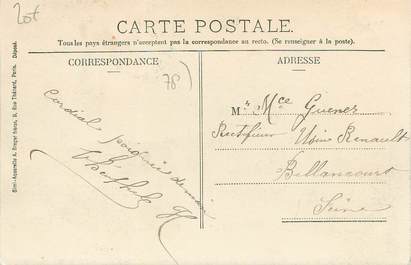 20f
CARTE POSTALE.
Tous les pays étrangers n'acceptent pas la correspondance au recto. (Se renseigner à la poste).
CORRESPONDANCE
ADRESSE
78
Cordial poignée de main
Mr. Mce Guenez
Rectifieur Usine Renault
Billancourt
Seine
9, Rue Thénard, Paris. Déposé.